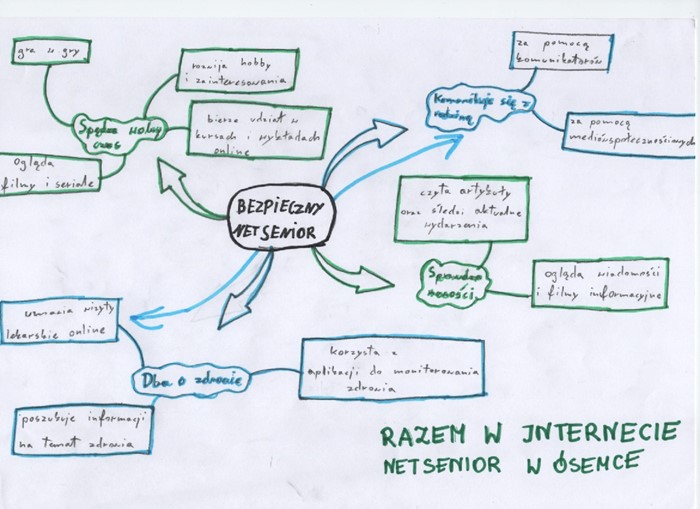 gra w gry
rozwija hobby
i zainteresowania
Spędza wolny
czas
bierze udział w
kursach i wykładach
online
ogląda
filmy i seriale
za pomocą
komunikatorów
Komunikuje się z
rodziną
za pomocą
mediów społecznościowych
BEZPIECZNY
NETSENIOR
czyta artykuły
oraz śledzi aktualne
wydarzenia
Sprawdza
nowości
ogląda wiadomości
i filmy informacyjne
umawia wizyty
lekarskie online
Dba o zdrowie
korzysta z
aplikacji do monitorowania
zdrowia
poszukuje informacji
na temat zdrowia
RAZEM W INTERNECIE
NETSENIOR W ÓSEMCE